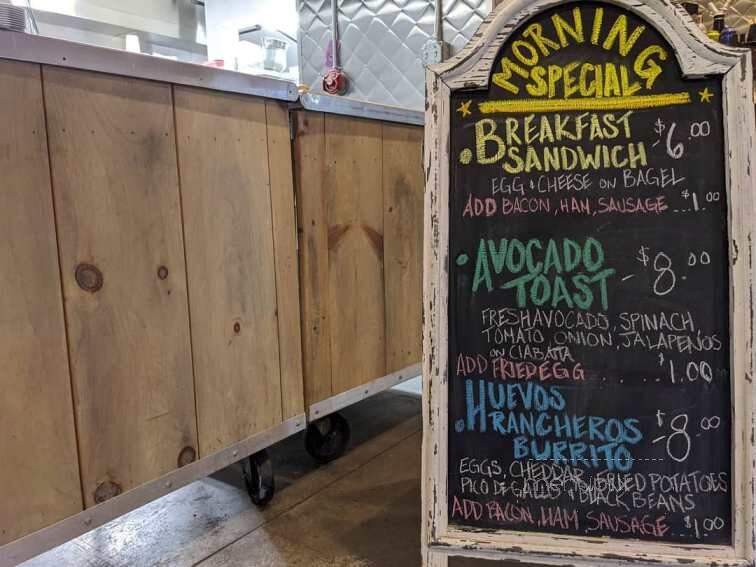 MORNING
SPECIAL
• BREAKFAST
SANDWICH $6.00
EGG & CHEESE ON BAGEL
ADD BACON, HAM, SAUSAGE ... $1.00
• AVOCADO
TOAST - $8.00
FRESH AVOCADO, SPINACH,
TOMATO ONION, JALAPEÑOS
ON CIABATTA
ADD FRIED EGG ....... $1.00
• HUEVOS
RANCHEROS
BURRITO - $8.00
EGGS, CHEDDAR, POTATOES
PICO DE & BLACK BEANS
ADD BACON, HAM SAUSAGE ... $1.00